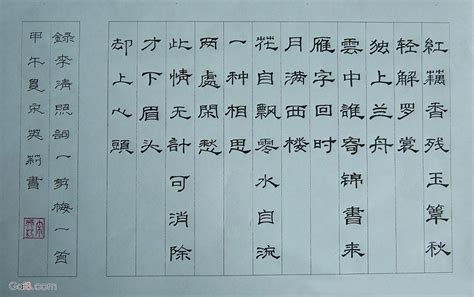 紅藕香残玉簟秋
轻解罗裳
独上兰舟
雲中誰寄锦書来
雁字回时
月满西楼
花自飘零水自流
一种相思
两處閑愁
此情无计可消除
才下眉头
却上心頭
錄李清照詞一剪梅一首
甲午夏宋英莉書